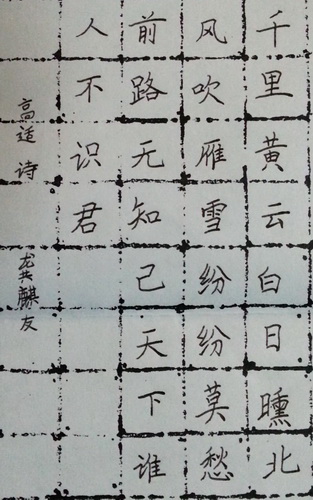 千里黄云白日曛北
风吹雁雪纷纷莫愁
前路无知己天下谁
人不识君
高适诗
龙共麒友